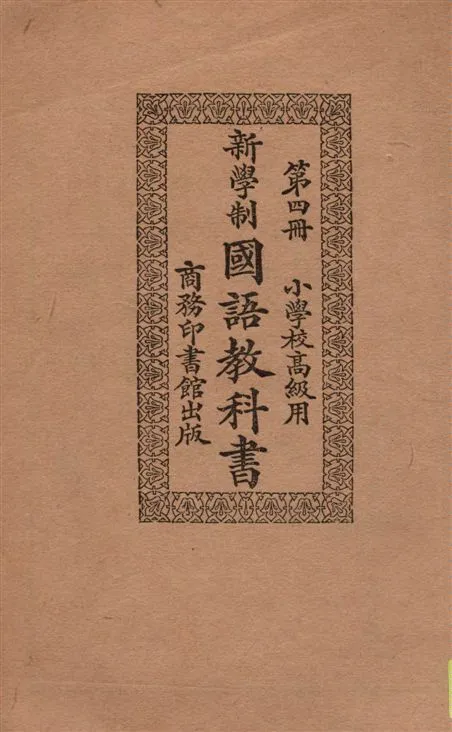 第四冊 小學校高級用
新學制國語教科書
商務印書館出版